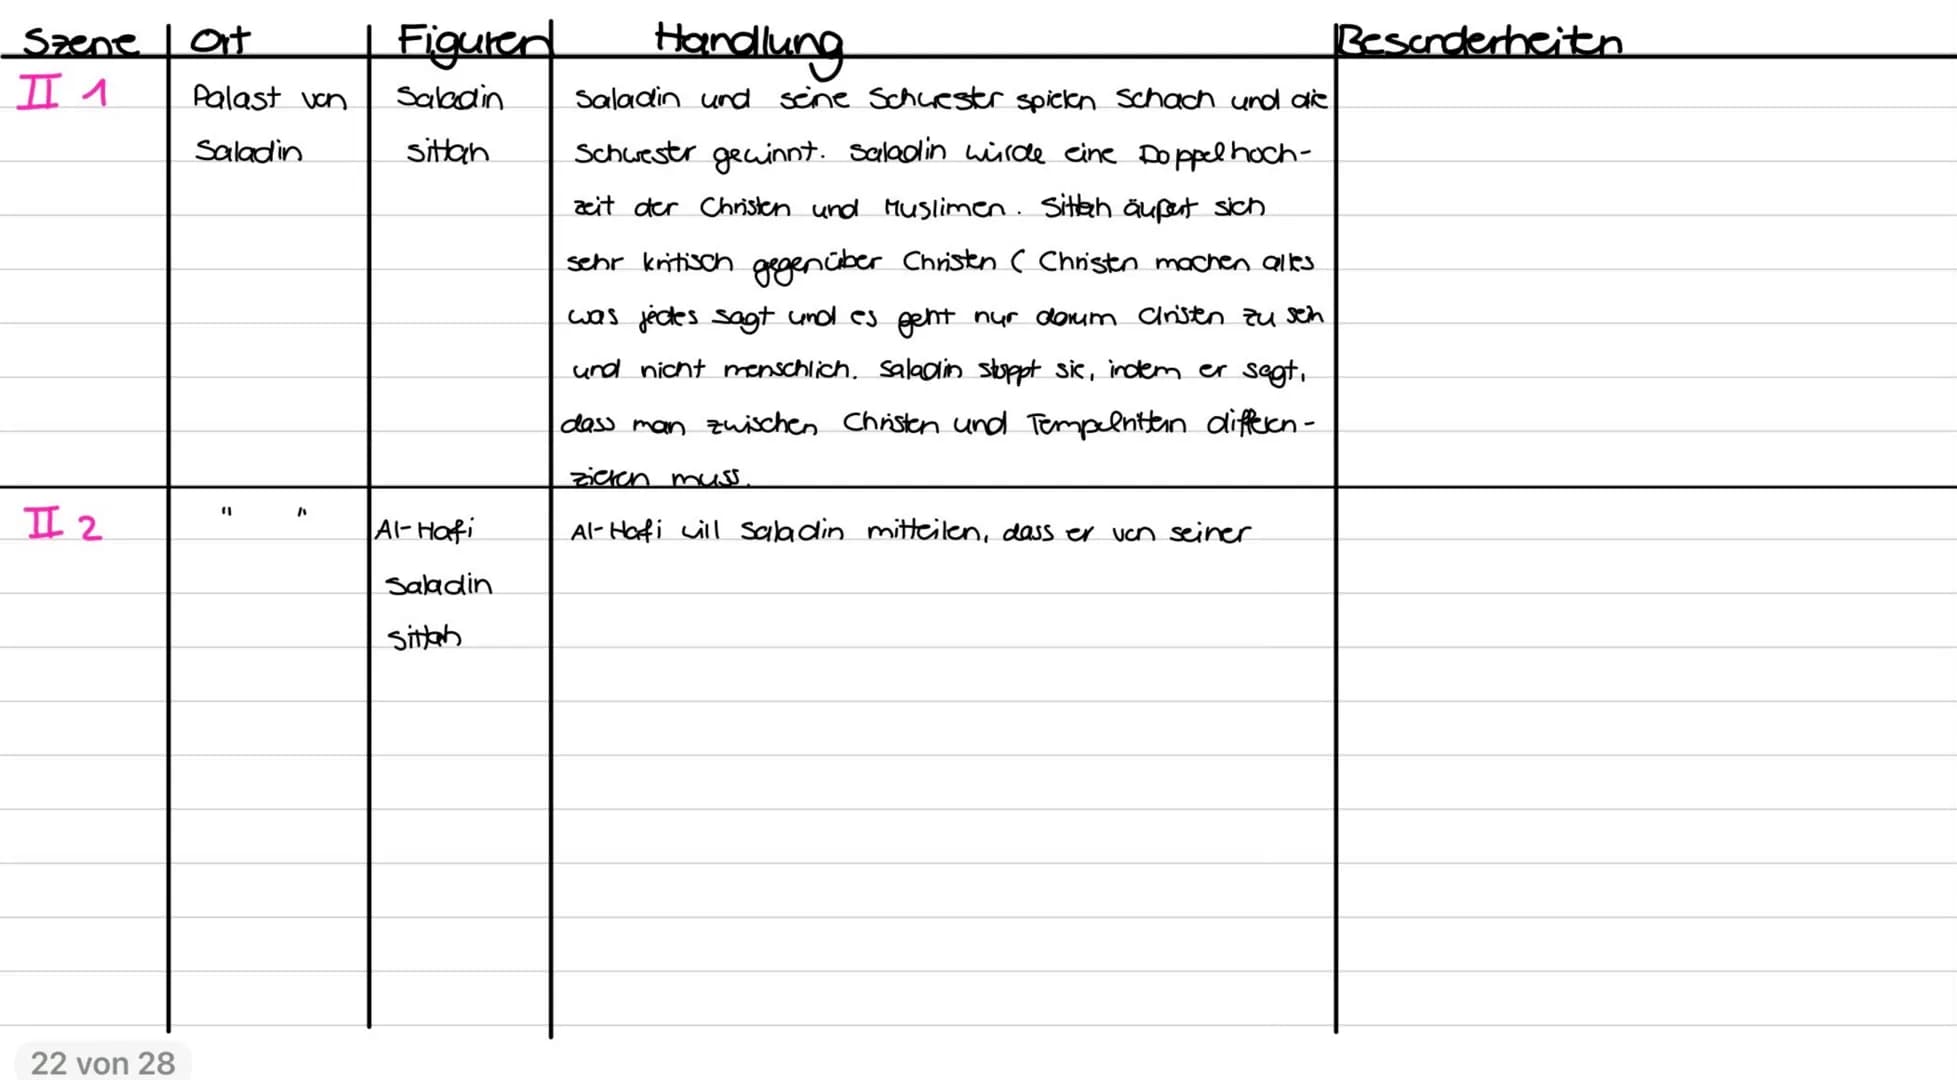 Szene Ort Figuren Handlung Besonderheiten
II 1 Palast von Saladin Saladin und seine Schwester spielen Schach und die
Saladin Sittah Schwester gewinnt. Saladin würde eine Doppelhoch-
zeit der Christen und Muslimen. Sittah äußert sich
sehr kritisch gegenüber Christen ( Christen machen alles
was jedes sagt und es geht nur darum Christen zu sein
und nicht menschlich. Saladin stoppt sie, indem er sagt,
dass man zwischen Christen und Tempelrittern differen-
zieren muss.
II 2 " " Al-Hafi Al-Hafi will Saladin mitteilen, dass er von seiner
Saladin
Sittah
22 von 28